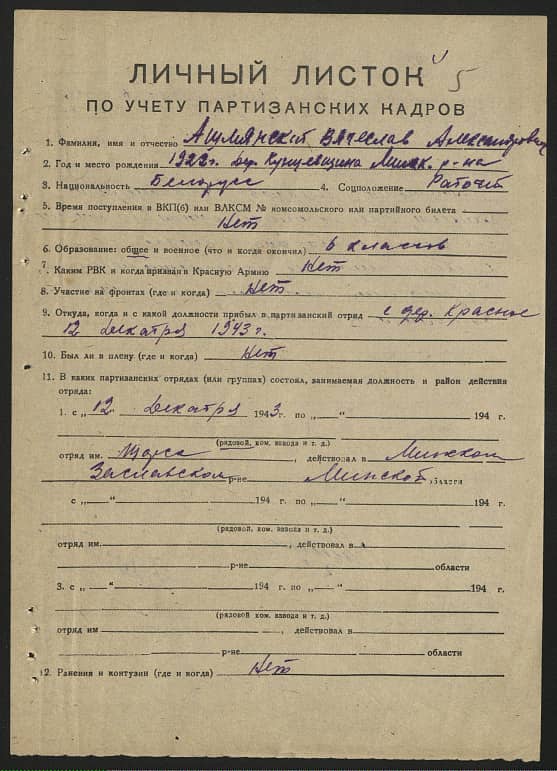 5
ЛИЧНЫЙ ЛИСТОК
ПО УЧЕТУ ПАРТИЗАНСКИХ КАДРОВ
1. Фамилия, имя и отчество Вячеслав Александрович
2. Год и место рождения 1922г. дер. Кунцевщина Минск. р-на
3. Национальность Белорусс 4. Соцположение Рабочий
5. Время поступления в ВКП(б) или ВЛКСМ № комсомольского или партийного билета
Нет
6. Образование: общее и военное (что и когда окончил) 6 классов
7. Каким РВК и когда призван в Красную Армию Нет
8. Участие на фронтах (где и когда) Нет
9. Откуда, когда и с какой должности прибыл в партизанский отряд с дер. Красное
12 декабря 1943 г.
10. Был ли в плену (где и когда) Нет
11. В каких партизанских отрядах (или группах) состоял, занимаемая должность и район действия
отряда:
1. с „12“ Декабря 1943 г. по „ “ 194 г.
(рядовой, ком. взвода и т. д.)
отряд им. Щорса, действовал в Минском
Заславском р-не Минской области
с „ “ 194 г. по „ “ 194 г.
(рядовой, ком. взвода и т. д.)
отряд им. , действовал в
р-не области
3. с „ “ 194 г. по „ “ 194 г.
(рядовой, ком. взвода и т. д.)
отряд им , действовал в
р-не области
12. Ранения и контузии (где и когда) Нет